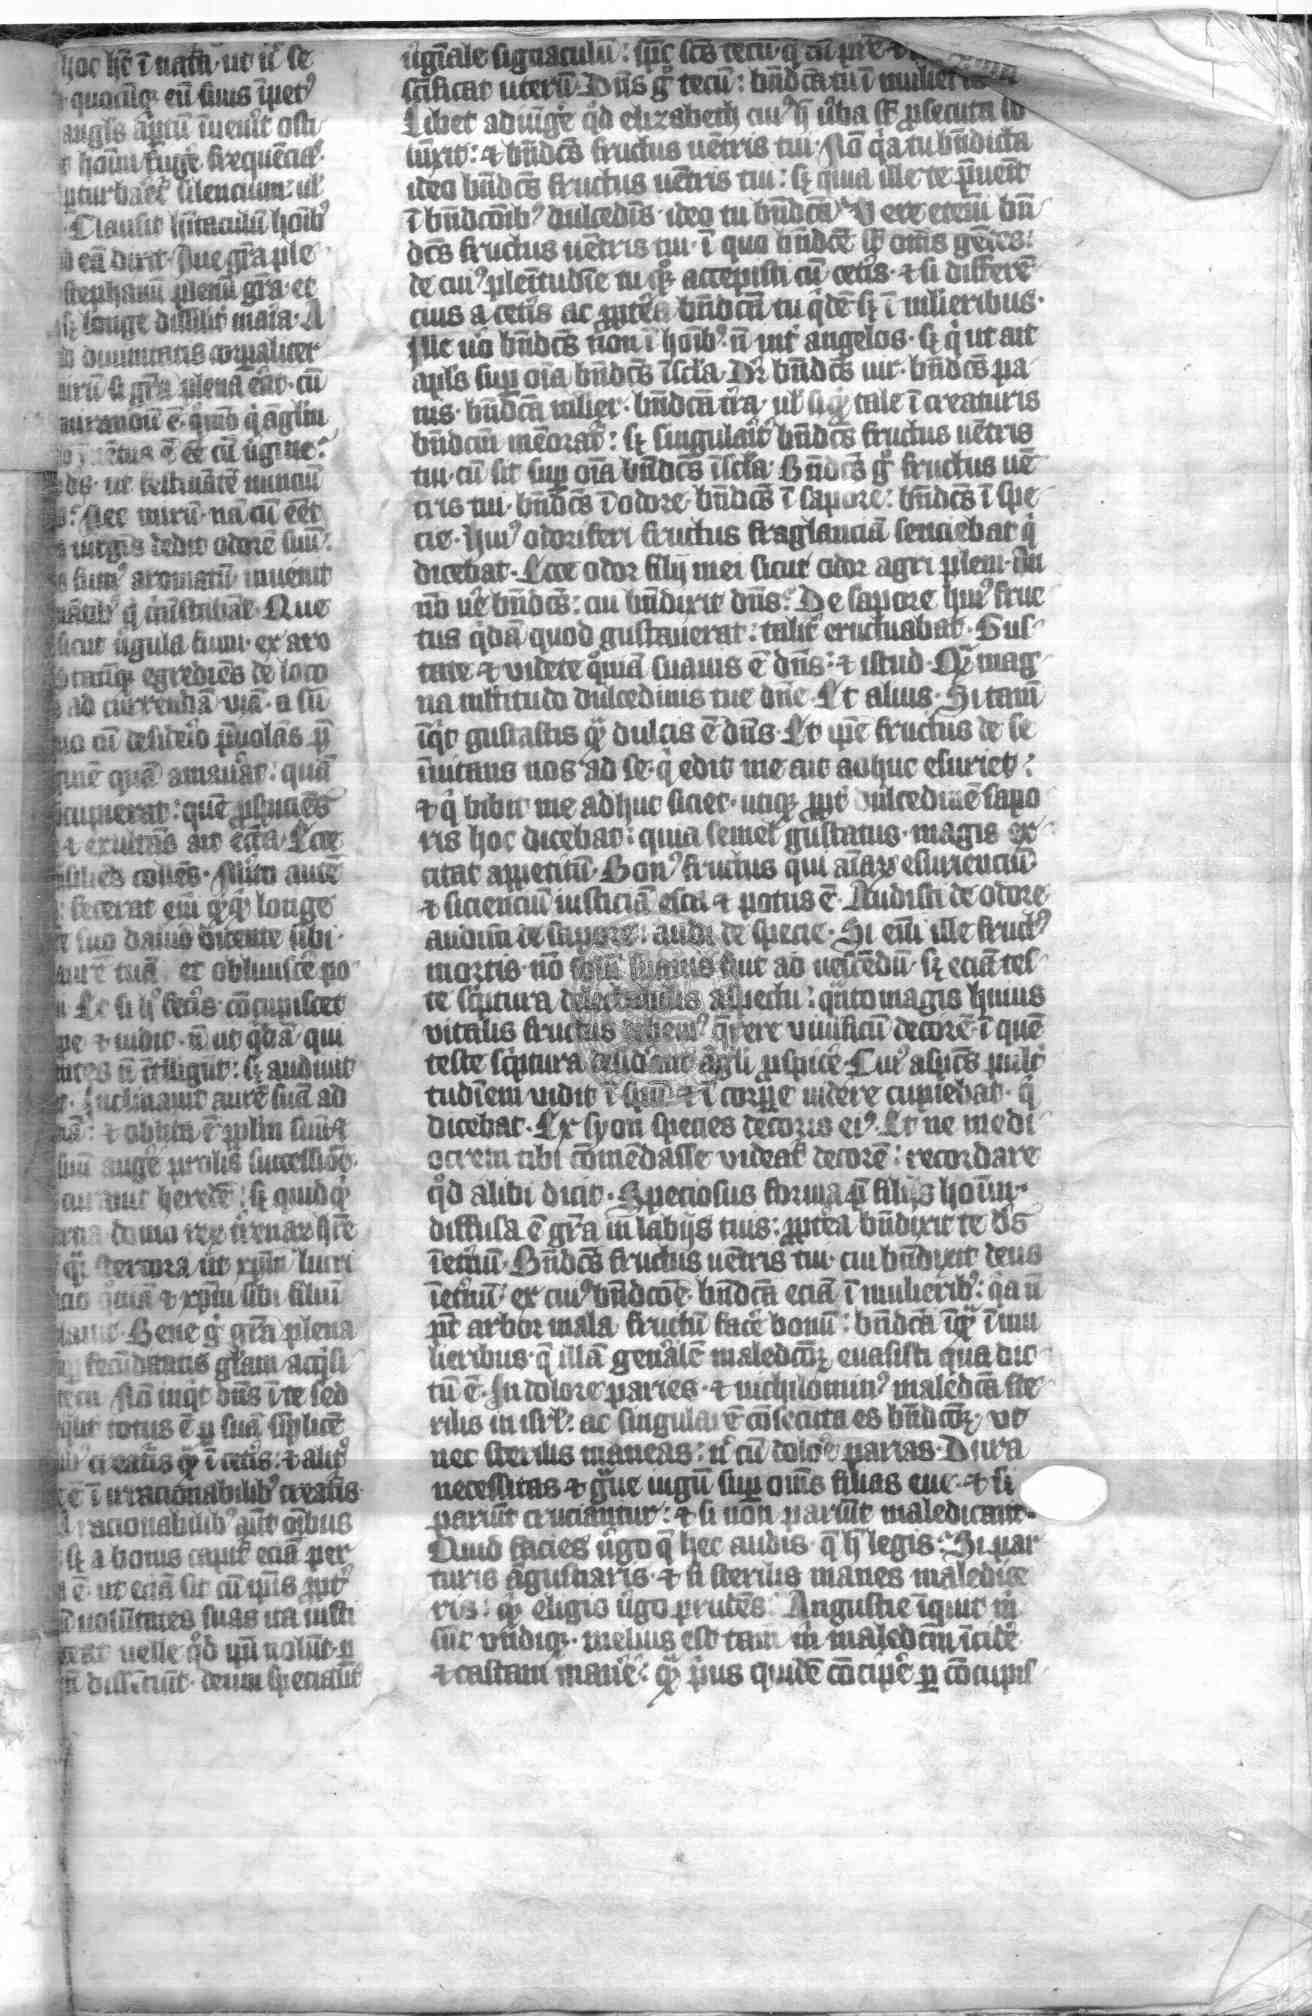 hoc hē ī nata̅ ut u̅ se
quocūqꝫ eū suus īpetꝰ
angl̅s ap̄tū īuen̄it osti
hoīm fug̅e frequēcia̅s
ꝑturbaret̅ silenciū: ul̅
Clausit hītaculū hoībꝰ
eā dixit Aue gr̅a ple
stephanū plenū gr̅a et
sꝫ longe dissil̅it maria A
diuinitatis corꝑalit̅
si gr̅a plena e̅at cū
mirandū ē quō qͥ angl̅m
uētus ē ee̅ cū ūgine:
ds ut festinātē nunciū
Nec mirū nā cū eēt
uirgīs dedit odorē suū:
fumꝰ aromatū inuenit
Que
sicut ūgula fumi ex aro
egrediēs de loco
ad currendā uiā a sū
desid̅io p̄uolās p̄
quē quā amauat̅: quā
cupierat: quē ꝓspiciēs
et exultās ait ecc̅a Ecce
siliēs colles Mīto autē
fecerat em̄ longe
suo dauid dicente sibi
tuā et obliuisce̅ po
Et si hͦ fec̅is cōcupiscet
ut qͣdā qui
n̄ ītelligūt: sꝫ audiuit
Inclinauit aurē suā ad
oblita ē ppl̅m suū ⁊
suū auge̅ prolis successiōe
curauit heredē: sꝫ quidqͥ
domo rex
stercora ut xpm̄ luc̅i
⁊ xpm̄ sibi filiū
Bene g̊ gr̅a plena
fecūdantis gl̅iam acqͥsi
tecū Nō inqͥt dn̅s ī te sed
totus ē ꝑ suā sīplicē
creatis qͣm ī cet̅is: ⁊ aliꝰ
ē ī irracionabilibꝰ creatis
racionabilibꝰ aūt oībus
sꝫ a bonis capit̅ eciā per
ē ut eciā sit cū ip̄is ꝓpt̅
uolūtates suas ita iusti
uelle qͦd ip̄e uolūt ꝑ
n̄ dissenciūt deum specialit̅
ūginale signaculū: spc̄ scs̄ tecū q̄ cū pr̅e ⁊
scīficat uterū Dn̅s g̊ tecū: bn̅dcā tu ī mulierib
Libet adiūge̅ qͦd elizabeth cuiꝰ h̄ ūba sūt ꝓsecuta sb̄
iūxit: ⁊ bn̅dcs̄ fructus uētris tui Nō qͥa tu bn̅dicta
ideo bn̅dcs̄ fructus uētris tui: sꝫ quia ille te p̄uenit
ī bn̅dcōnibꝰ dulcedīs ideo tu bn̅dcā Vere eteni̅ bn̅
dcs̄ fructus uētris tui ī quo bn̅dcē sūt om̄s gētes:
de cuiꝰ plenitudīe tu qͦqꝫ accepisti cū cet̅is ⁊ si differē
cius a cet̅is ac ꝓpt̅ea bn̅dcā tu qͥdē sꝫ ī mlieribus
Ille uo̅ bn̅dcs̄ non ī hoībꝰ n̄ int̅ angelos sꝫ qͥ ut ait
apl̅s suꝑ oīa bn̅dcs̄ ī scl̅a Dr̅ bn̅dcs̄ uir bn̅dcs̄ pa
nis bn̅dcā mlier bn̅dcā tr̅a ul̅ si qͥd tale ī creaturis
bn̅dcm̄ mēorat̅: sꝫ singularit̅ bn̅dcs̄ fructus uētris
tui cū sit suꝑ oīa bn̅dcs̄ ī scl̅a Bn̅dcs̄ g̊ fructus uē
tris tui bn̅dcs̄ ī odore bn̅dcs̄ ī sapore: bn̅dcs̄ ī spe
cie Huiꝰ odoriferi fructus fraglanciā senciebat qͥ
dicebat Ecce odor filij mei sicut odor agri pleni An
nō ue̅ bn̅dcs̄: cui bn̅dixit dn̅s: De sapore huiꝰ fruc
tus qͥdā quod gustauerat: talit̅ eructuabat Gus
tate ⁊ videte qͦniā suauis ē dn̅s: ⁊ istud Qͣm mag
na mltitudo dulcedinis tue dn̅e Et alius Si tam̄
īqͥt gustastis qͣm dulcis ē dn̅s Et ip̄e fructus de se
īuitans nos ad se qͥ edit me ait adhuc esuriet:
⁊ qͥ bibit me adhuc siciet utiqꝫ ꝓpt̅ dulcedinē sapo
ris hoc dicebat: quia semel gustatus magis ex
citat appetitū Bonꝰ fructus qui aīaꝝ esurienciū
⁊ siciencium iusticiā esca ⁊ potus ē Audisti de odore
audisti de sapore: audi de specie Si em̄ ille fructꝰ
mortis nō solū suauis fuit ad uescēdū sꝫ eciā tes
te sc̅ptura delectabilis aspectu: qͣnto magis huius
vitalis fructus debemꝰ qͣrere viuificū decorē ī quē
teste sc̅ptura desid̅ant āgli ꝓspice̅ Cuiꝰ aspcs̄ pulc̅
tudīem vidit ī spū ⁊ ī corꝑe videre cupiebat qͥ
dicebat Ex syon species decoris eiꝰ Et ne medi
ocrem tibi cōmēdasse videat̅ decorē: recordare
qͦd alibi dicit Speciosus forma p̄ filijs hoīm
diffusa ē gr̅a in labijs tuis: ꝓpt̅ea bn̅dixit te ds̄
īet̅nū Bn̅dcs̄ fructus uētris tui cui bn̅dixit deus
īet̅nū ex cuiꝰ bn̅dcōe bn̅dcā eciā ī mulieribꝰ: qͥa n̄
pt̄ arbor mala fructū face̅ bonū: bn̅dcā īqͣm ī mu
lieribus q̄ illā gen̅alē maledcōꝫ euasisti qua dic
tū ē In dolore paries ⁊ nichilominꝰ maledcā ste
rilis in isrl̅: ac singularē cōsecuta es bn̅dcōꝫ vt
nec sterilis maneas: n̄ cū dolore parias Dura
necessitas ⁊ gͣue iugū suꝑ om̄s filias eue ⁊ si
pariūt cruciantur: ⁊ si non pariūt maledicunt̅
Quid facies ūgo q̄ hec audis q̄ h̄ legis: Si par
turis āgustiaris ⁊ si sterilis manes maledice
ris: qͥd eligis ūgo prudēs: Angustie īqͥunt m̅
sūt vndiqꝫ melius est tam̄ m̅ maledcm̄ īcide̅
⁊ castam mane̅: qͣm p̅us quidē cōcipe̅ ꝑ cōcupis